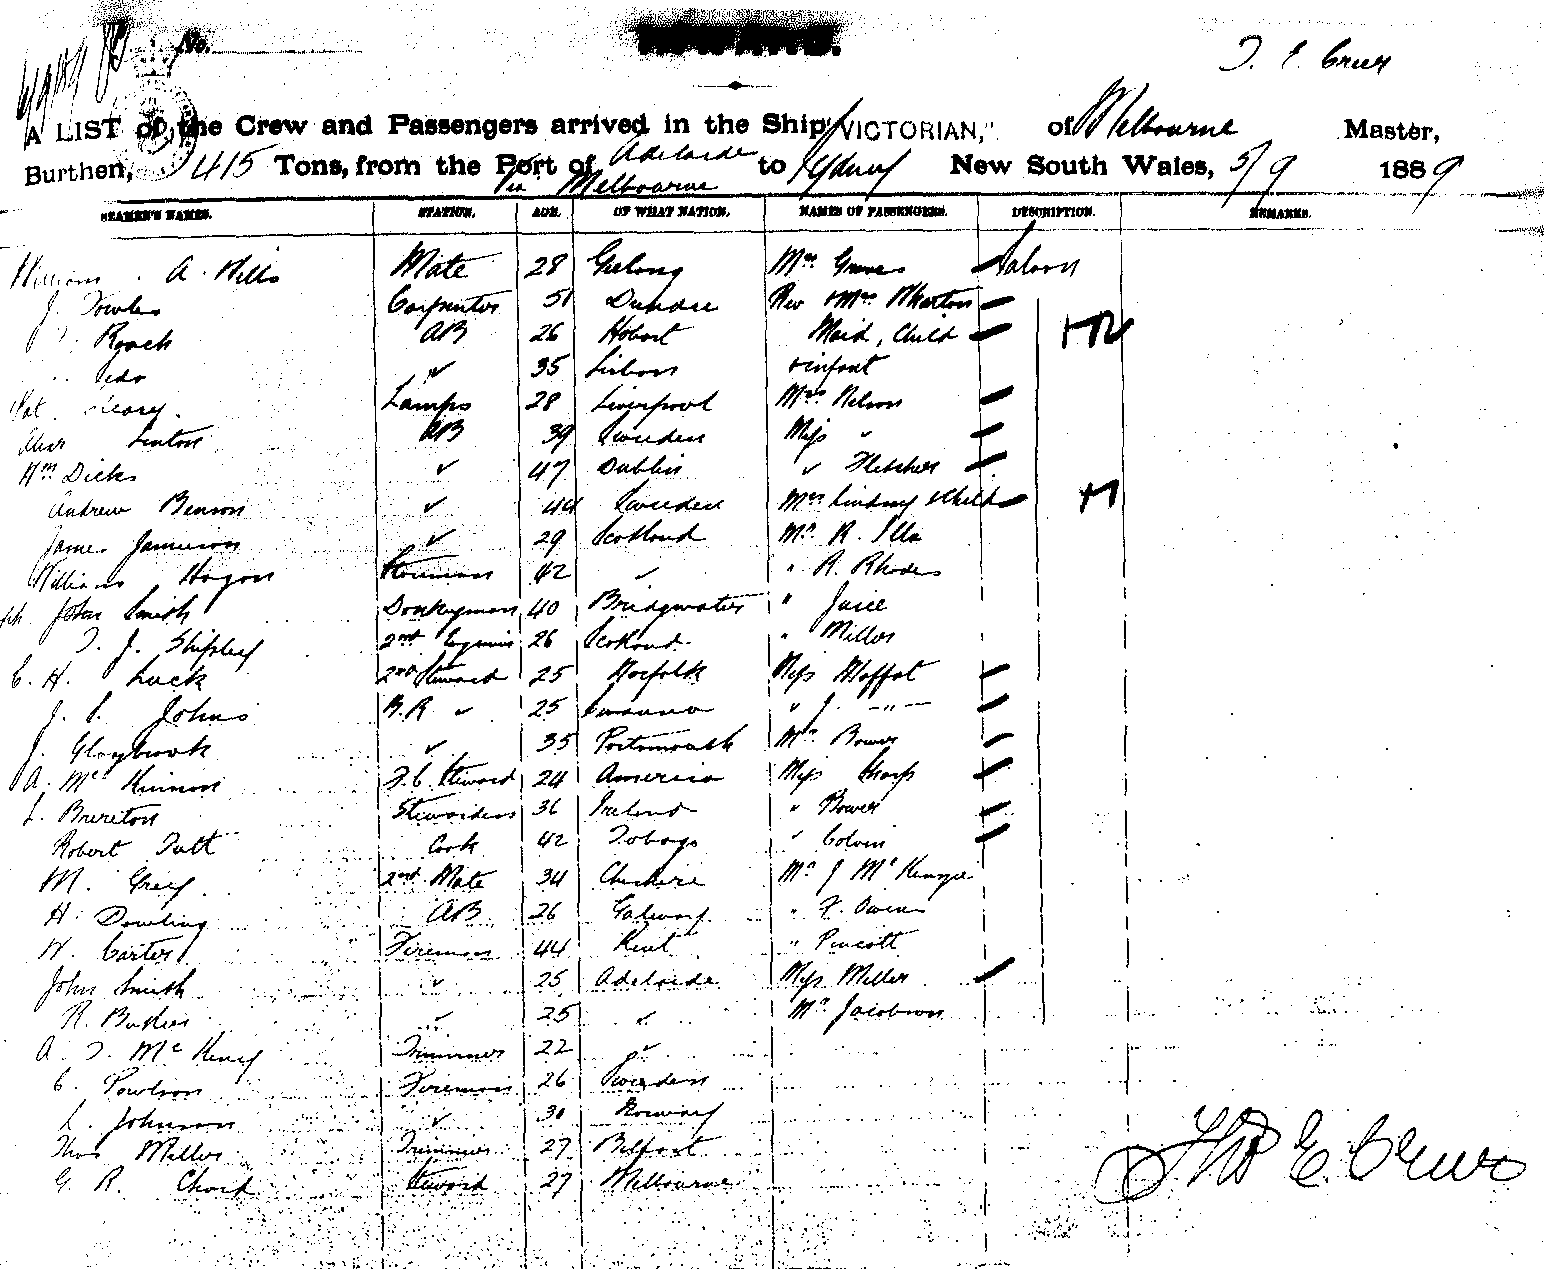 No.
INWARD.
T. E. Creer
A LIST of the Crew and Passengers arrived in the Ship "VICTORIAN," of Melbourne Master,
Burthen, 415 Tons, from the Port of Adelaide to Sydney New South Wales, 5/9 1889
Via Melbourne
SEAMEN'S NAMES. STATION. AGE. OF WHAT NATION. NAMES OF PASSENGERS. DESCRIPTION. REMARKS.
William A. Mills Mate 28 Geelong Mrs Graves Saloon
J. Fowler Carpenter 51 Dundee Rev & Mrs Wharton
Roach AB 26 Hobart Maid, Child
35 Lisbon & infant
Pat. Cleary. Lamps 28 Liverpool Mrs Nelson
Alexr Linton AB 39 Sweden Miss "
Wm Dicks " 47 Dublin " Fletcher
Andrew Benson " 44 Sweden Mrs Lindsay & Child
James Jamieson " 29 Scotland Mr R.
William Hogan 42 " " R. Rhodes
John Smith Donkeyman 40 Bridgwater " Juice
T. J. Shipley 2nd Engineer 26 Scotland " Miller
C. H. Luck 2nd Steward 25 Norfolk Miss Moffat
J. C. Johns B.R " 25 Swansea " J. - " -
J. Glaybrook " 35 Portsmouth Mrs Bower
A. McKinnon F.C. Steward 24 America Miss Sharp
L. Brereton Stewardess 36 Ireland " Bower
Robert Tutt Cook 42 Tobago " Colvin
M. Grey 2nd Mate 34 Cheshire Mr J McKenzie
H. Dowling AB 26 Galway " F. Owens
W. Carter Fireman 44 Kent " Pincott
John Smith " 25 Adelaide Miss Miller
R. " 25 " Mr Jacobson
A. T. McHenry Trimmer 22 "
C. Poulson Fireman 26 Sweden
L. Johnson " 30 Norway
Thos Miller Trimmer 27 Belfast
G. R. Chard Steward 27 Melbourne
Thos E. Creer